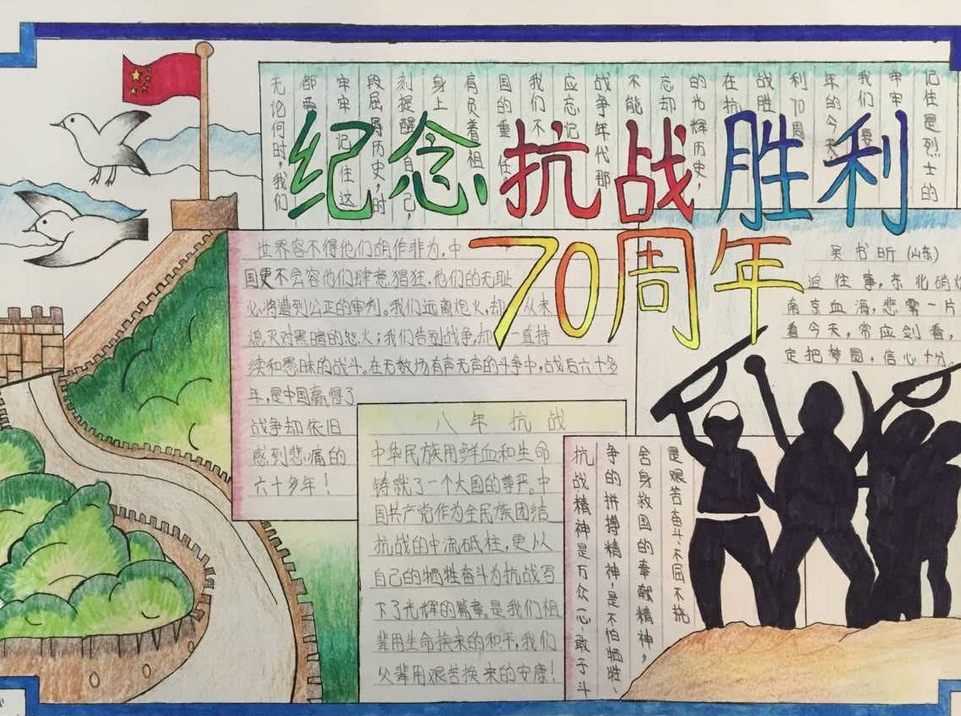 纪念抗战胜利
70周年
无论何时,我们
都要
牢牢记住这
段屈辱历史,时
刻提醒自己,
身上
肩负着祖
国的重任。
我们不
应忘记
战争年代那
不能
忘却
的光辉历史,
在抗
战胜
利70周
年的今天
我们要
牢牢
记住是烈士的
世界容不得他们胡作非为,中
国更不会容他们肆意猖狂,他们的无耻
必将遭到公正的审判。我们远离炮火,却从未
熄灭对黑暗的怒火;我们告别战争,却一直持
续和愚昧的战斗。在无数场有声无声的斗争中,战后六十多
年,是中国赢得了
战争却依旧
感到悲痛的
六十多年!
吴书昕(山东)
近往事,东北硝烟
南京血海,悲雾一片
看今天,常应剑看,
定把梦圆,信心十分。
八年抗战
中华民族用鲜血和生命
铸就了一个大国的尊严。中
国共产党作为全民族团结
抗战的中流砥柱,更以
自己的牺牲奋斗为抗战写
下了光辉的篇章。是我们祖
辈用生命换来的和平,我们
父辈用艰苦换来的安康!
抗战精神是万众一心、敢于斗
争的拼搏精神;是不怕牺牲、
舍身救国的奉献精神,
是艰苦奋斗、不屈不挠